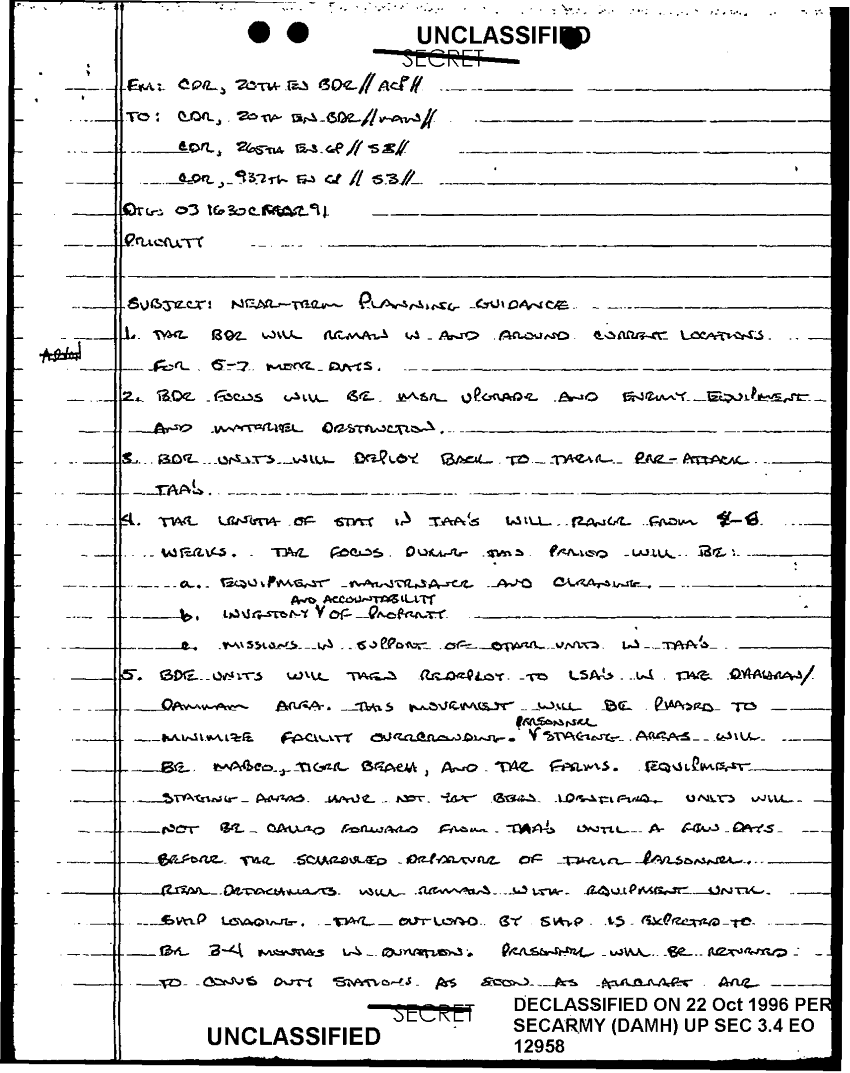 UNCLASSIFIED
SECRET
FM: CDR, 20TH EN BDE // ACP //
TO: CDR, 20TH EN BDE // MAIN //
CDR, 265TH EN GP // S3 //
CDR, 937TH EN GP // S3 //
DTG: 03 1630C MAR 91
PRIORITY
SUBJECT: NEAR-TERM PLANNING GUIDANCE
1. THE BDE WILL REMAIN IN AND AROUND CURRENT LOCATIONS
FOR 5-7 MORE DAYS.
2. BDE FOCUS WILL BE MSR UPGRADE AND ENEMY EQUIPMENT
AND MATERIEL DESTRUCTION.
3. BDE UNITS WILL DEPLOY BACK TO THEIR PRE-ATTACK
TAA'S.
4. THE LENGTH OF STAY IN TAA'S WILL RANGE FROM
WEEKS. THE FOCUS DURING THIS PERIOD WILL BE:
a. EQUIPMENT MAINTENANCE AND CLEANING.
AND ACCOUNTABILITY
b. INVENTORY V OF PROPERTY
c. MISSIONS IN SUPPORT OF OTHER UNITS IN TAA'S
5. BDE UNITS WILL THEN REDEPLOY TO LSA'S IN THE DHAHRAN/
DAMMAM AREA. THIS MOVEMENT WILL BE PHASED TO
PERSONNEL
MINIMIZE FACILITY OVERCROWDING. V STAGING AREAS WILL
BE MABCO, TIGER BEACH, AND THE FARMS. EQUIPMENT
STAGING AREAS HAVE NOT YET BEEN IDENTIFIED. UNITS WILL
NOT BE CALLED FORWARD FROM TAA'S UNTIL A FEW DAYS
BEFORE THE SCHEDULED DEPARTURE OF THEIR PERSONNEL.
REAR DETACHMENTS WILL REMAIN WITH EQUIPMENT UNTIL
SHIP LOADING. THE OUTLOAD BY SHIP IS EXPECTED TO
BE 3-4 MONTHS IN DURATION. PERSONNEL WILL BE RETURNED
TO CONUS DUTY STATIONS AS SOON AS AIRCRAFT ARE
SECRET
UNCLASSIFIED
DECLASSIFIED ON 22 Oct 1996 PER
SECARMY (DAMH) UP SEC 3.4 EO
12958